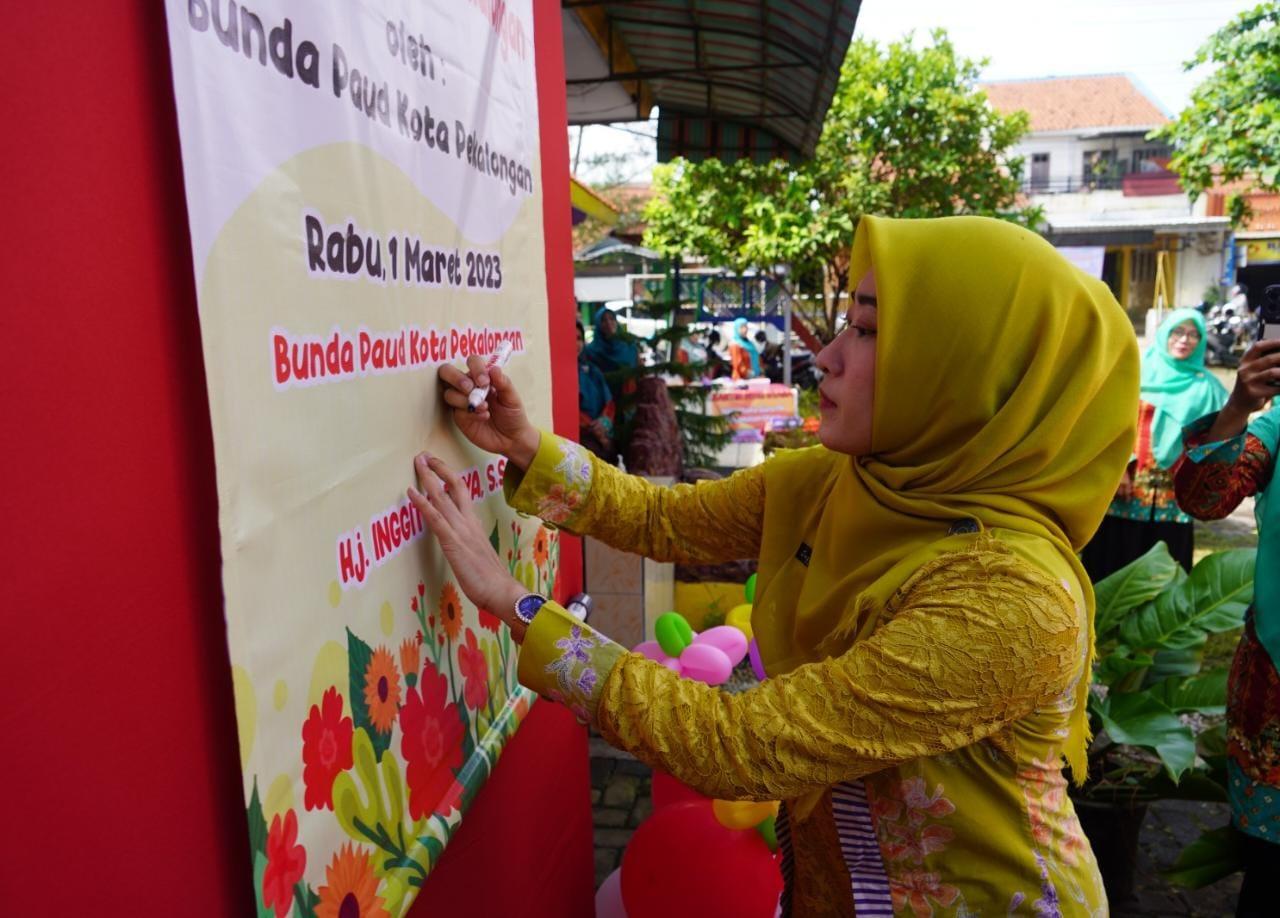 oleh :
Bunda Paud Kota Pekalongan
Rabu, 1 Maret 2023
Bunda Paud Kota Pekalongan
Hj. INGGIT